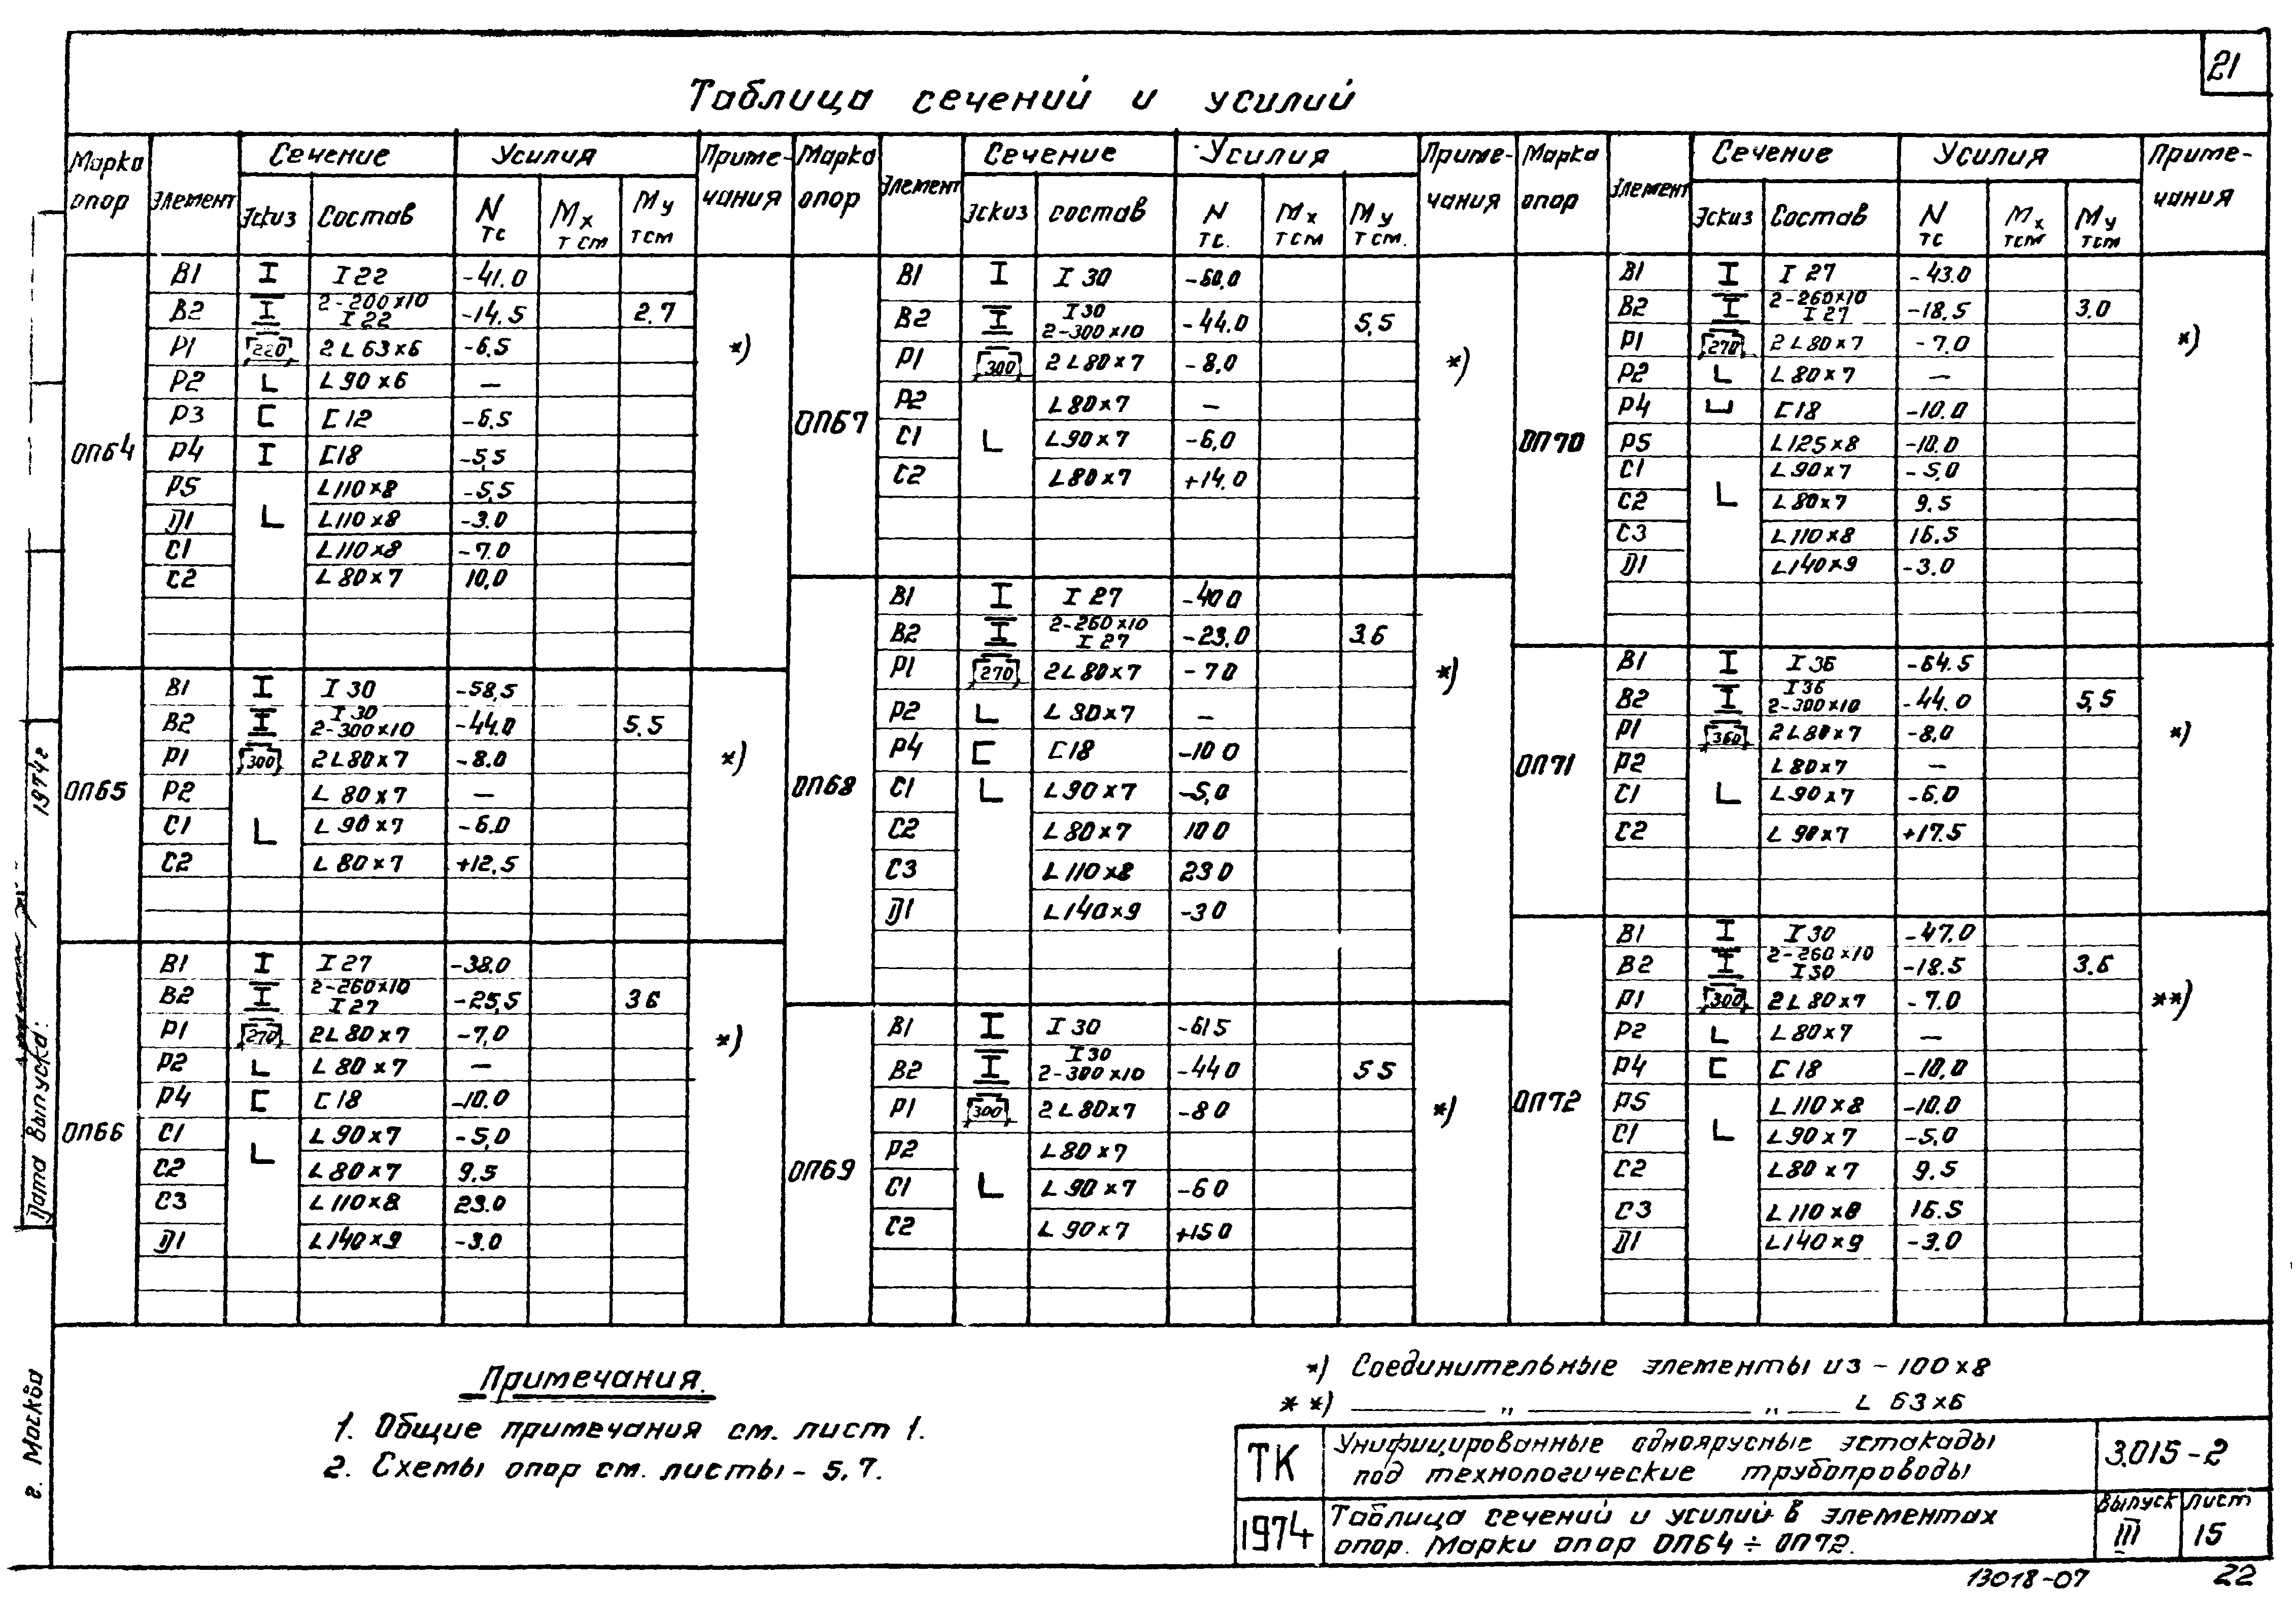 21
Таблица сечений и усилий
Марка опор Элемент Сечение Усилия Приме-чания
Эскиз Состав N тс Mx тсм My тсм
ОП64
В1 I I 22 -41.0
В2 2-200×10 I 22 -14.5 2.7
Р1 220 2 L 63×6 -6,5 *)
Р2 L L 90×6 —
Р3 [ [ 12 -6,5
Р4 I [ 18 -5,5
Р5 L 110×8 -5,5
Д1 L L 110×8 -3.0
С1 L 110×8 -7.0
С2 L 80×7 10,0
ОП65
В1 I I 30 -58,5
В2 I 30 2-300×10 -44.0 5.5
Р1 300 2 L 80×7 -8.0 *)
Р2 L 80×7 —
С1 L L 90×7 -6.0
С2 L 80×7 +12,5
ОП66
В1 I I 27 -38.0
В2 2-260×10 I 27 -25,5 3 6
Р1 270 2 L 80×7 -7,0 *)
Р2 L L 80×7 —
Р4 [ [ 18 -10.0
С1 L L 90×7 -5,0
С2 L 80×7 9.5
С3 L 110×8 23.0
Д1 L 140×9 -3.0
Марка опор Элемент Сечение Усилия Приме-чания
Эскиз состав N тс. Mx тсм My тсм.
ОП67
В1 I I 30 -60,0
В2 I 30 2-300×10 -44.0 5,5
Р1 300 2 L 80×7 -8,0 *)
Р2 L 80×7 —
С1 L L 90×7 -6,0
С2 L 80×7 +14.0
ОП68
В1 I I 27 -40 0
В2 2-260×10 I 27 -23.0 3.6
Р1 270 2 L 80×7 -7 0 *)
Р2 L L 80×7 —
Р4 [ [ 18 -10 0
С1 L L 90×7 -5,0
С2 L 80×7 10 0
С3 L 110×8 23 0
Д1 L 140×9 -3 0
ОП69
В1 I I 30 -61 5
В2 I 30 2-300×10 -44 0 5 5
Р1 300 2 L 80×7 -8 0 *)
Р2 L 80×7
С1 L L 90×7 -6 0
С2 L 90×7 +15 0
Марка опор Элемент Сечение Усилия Приме-чания
Эскиз Состав N тс Mx тсм My тсм
ОП70
В1 I I 27 -43.0
В2 2-260×10 I 27 -18,5 3.0
Р1 270 2 L 80×7 -7.0 *)
Р2 L L 80×7 —
Р4 [ 18 -10.0
Р5 L 125×8 -10.0
С1 L 90×7 -5,0
С2 L L 80×7 9.5
С3 L 110×8 16.5
Д1 L 140×9 -3.0
ОП71
В1 I I 36 -64.5
В2 I 36 2-300×10 -44.0 5,5
Р1 360 2 L 80×7 -8,0 *)
Р2 L 80×7 —
С1 L L 90×7 -6.0
С2 L 90×7 +17.5
ОП72
В1 I I 30 -47.0
В2 2-260×10 I 30 -18.5 3.6
Р1 300 2 L 80×7 -7.0 **)
Р2 L L 80×7 —
Р4 [ [ 18 -10,0
Р5 L 110×8 -10.0
С1 L L 90×7 -5,0
С2 L 80×7 9.5
С3 L 110×8 16.5
Д1 L 140×9 -3.0
Примечания.
1. Общие примечания см. лист 1.
2. Схемы опор см. листы - 5,7.
*) Соединительные элементы из - 100×8
**) — „ — „ — L 63×6
ТК Унифицированные одноярусные эстакады
под технологические трубопроводы
3.015-2
1974 Таблица сечений и усилий в элементах
опор. Марки опор ОП64 ÷ ОП72.
Выпуск III Лист 15
13018-07 22
Дата выпуска: 1974 г
г. Москва